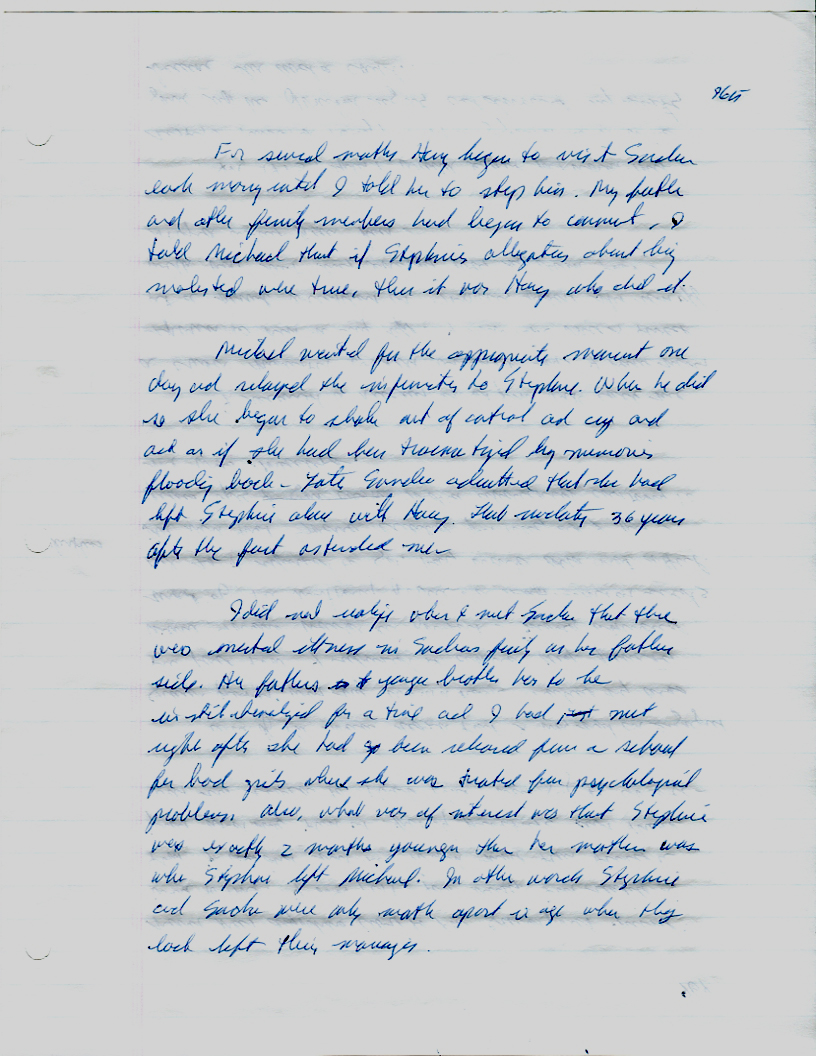 For several months Harry began to visit Sandra
each morning until I told her to stop him. My father
and other family members had began to comment. I
told Michael that if Stephanies allegations about being
molested were true, then it was Harry who did it.
Michael waited for the appropriate moment one
day and relayed the information to Stephanie. When he did
so she began to shake out of control and cry and
act as if she had been traumatized by memories
flooding back - Later Sandra admitted that she had
left Stephanie alone with Harry. That revelation 36 years
after the fact astounded me.
I did not realize when I met Sandra that there
was mental illness in Sandras family on her father
side. Her fathers younger brother has to be
institutionalized for a time and I had met
right after she had been released from a school
for bad girls where she was treated for psychological
problems. Also, what was of interest was that Stephanie
was exactly 2 months younger than her mother was
when Stephanie left Michael. In other words Stephanie
and Sandra were only months apart in age when they
each left their marriages.